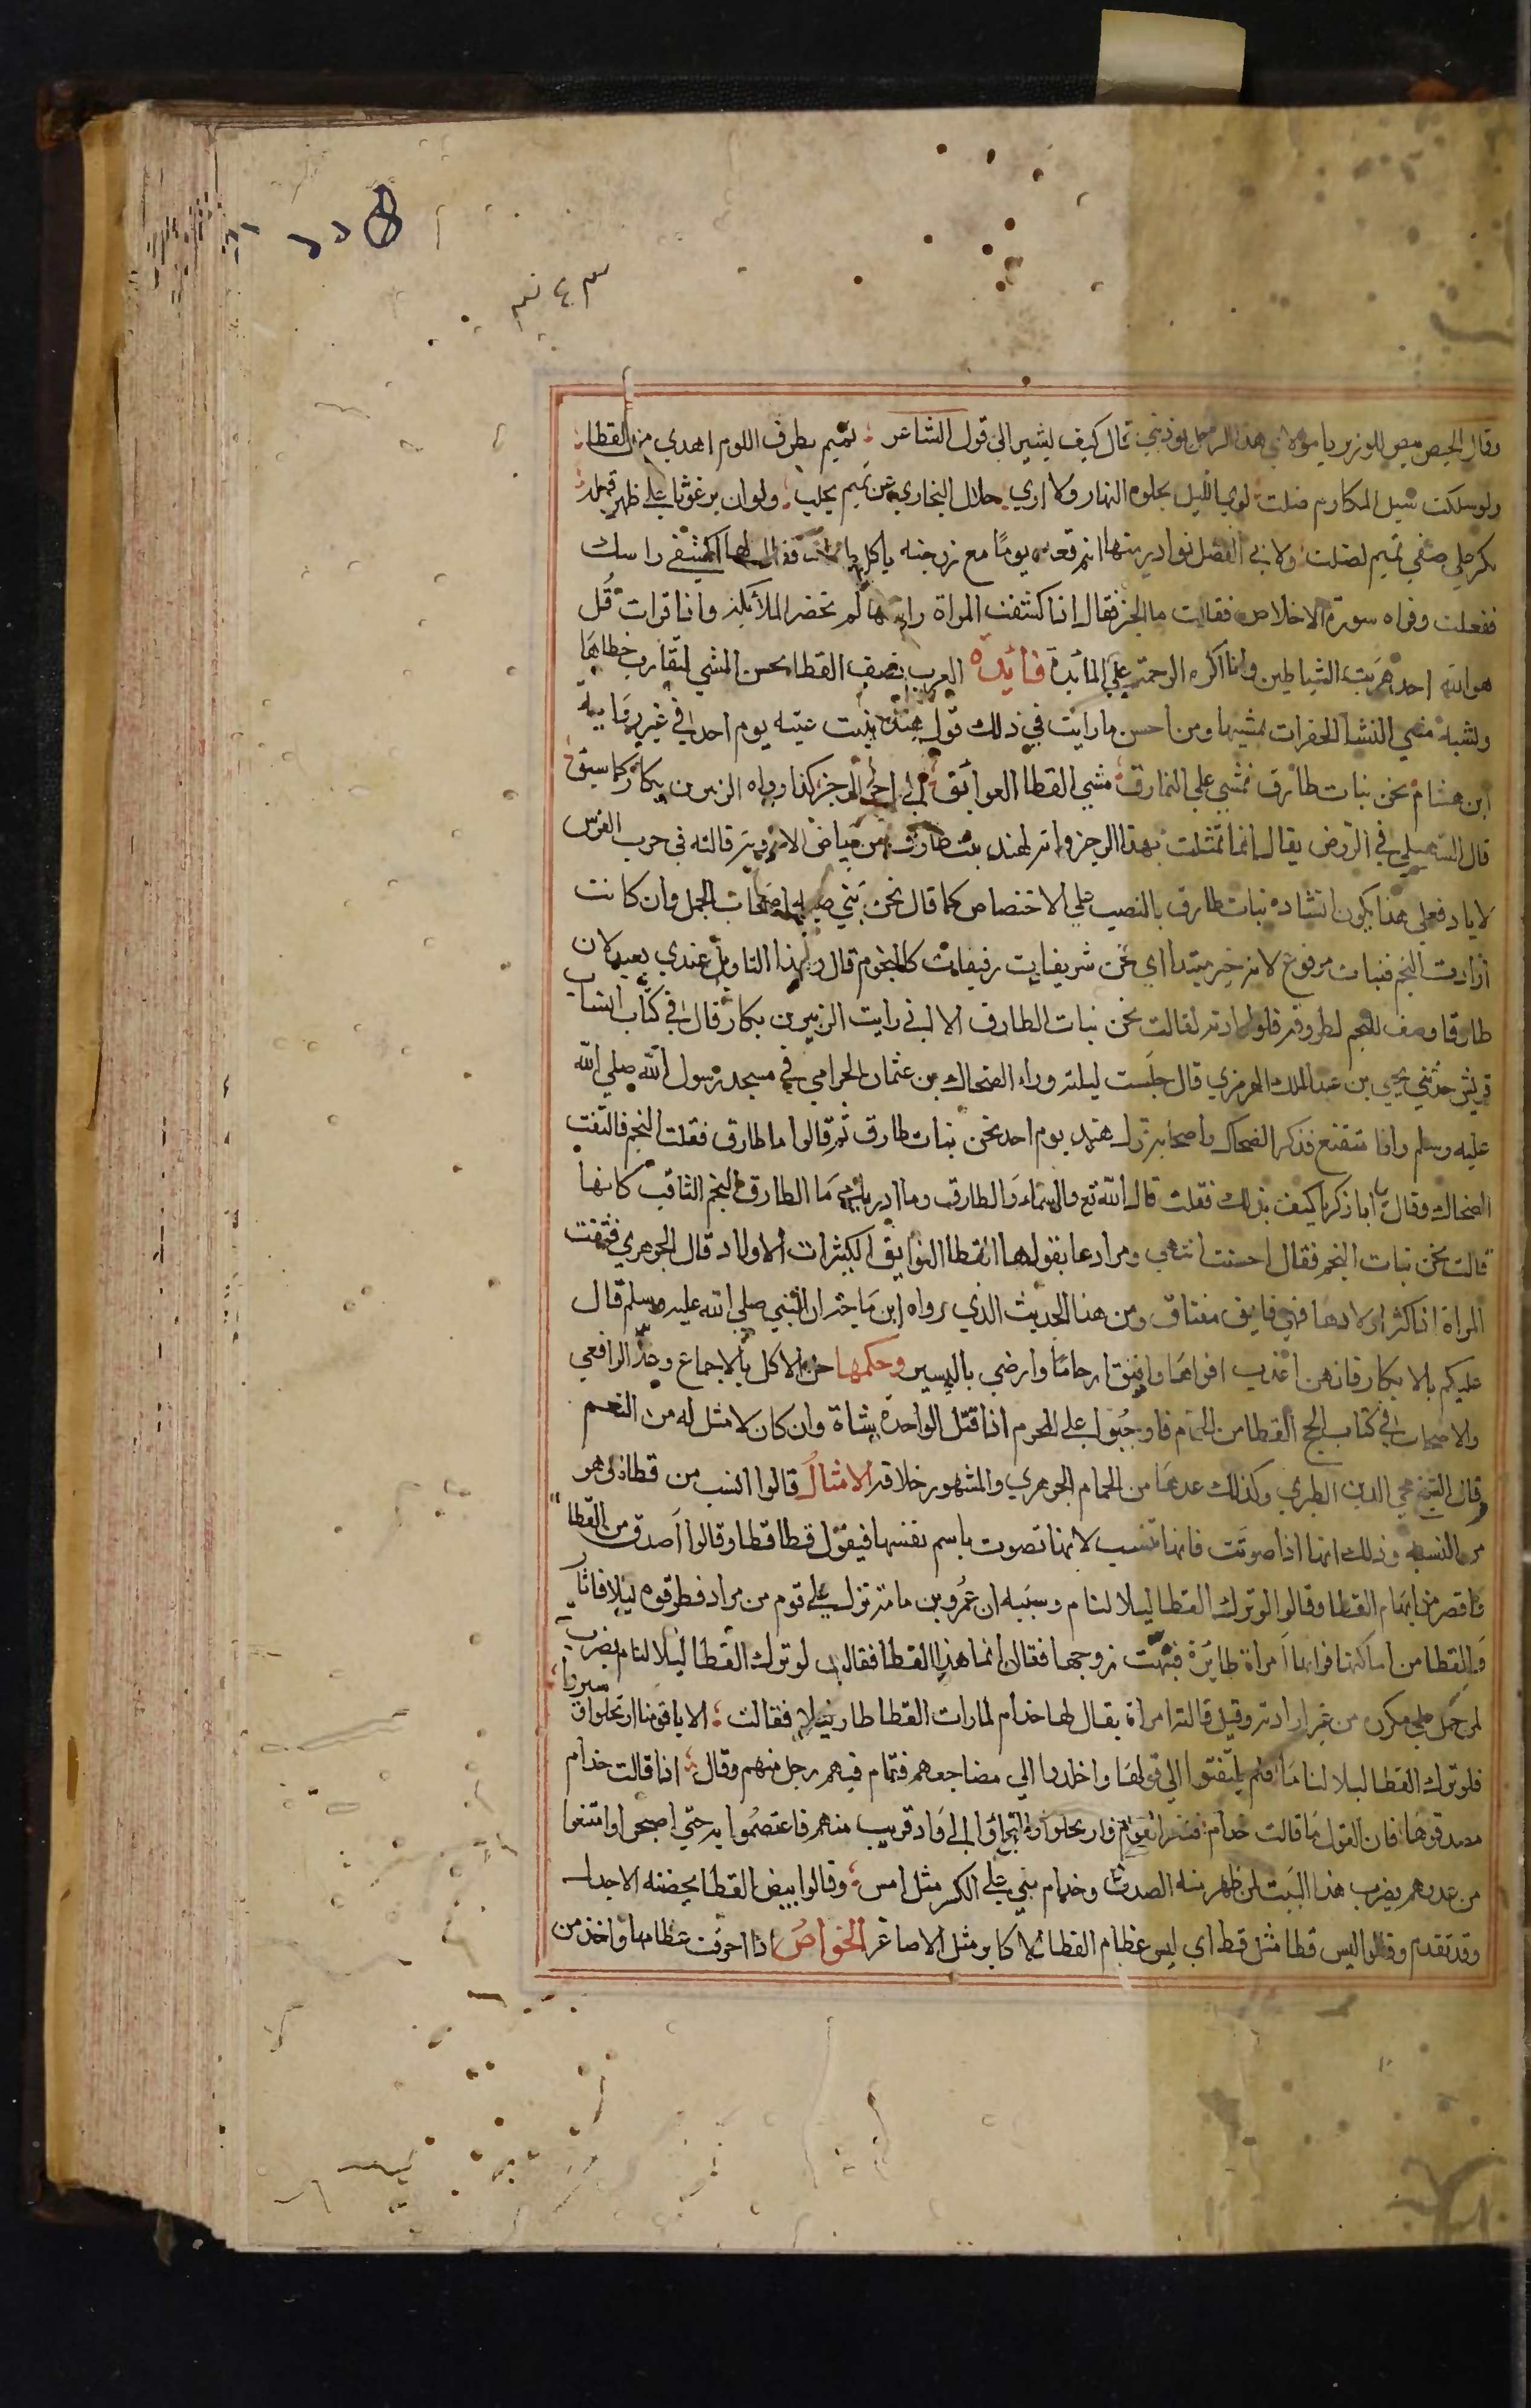 وقال الحيص بيص للوزير يا مولاي هذا الرجل يوذيني قال كيف يشير الى قول الشاعر تميم بطرق اللوم اهدي من القطا
ولو سلكت سبل المكارم ضلت اري الليل يجلوه النهار ولا اري خلال المخازي عن تميم تجلت ولو ان برغوثا علي ظهر قملة
يكر علي صفي تميم لضلت ولابي الفضل نوادر منها انه قعد يوما مع زوجته ياكل طعاما فقال لها اكشفي راسك
ففعلت وقراه سورة الاخلاص فقالت ما الخبر فقال اذا كشفت المراة راسها لم تحضر الملائكة واذا قرات قل
هو الله احد هربت الشياطين وانا اكره الزحمة علي المائدة فائدة العرب تصف القطا بحسن المشي لتقارب خطاها
وتشبه مشي النسا الخفرات بمشيها ومن احسن ما رايت في ذلك قول هند بنت عتبه يوم احد في غير رواية
ابن هشام نحن بنات طارق نمشي علي النمارق مشي القطا العوانق الى اخر الرجز كذا رواه الزبير بن بكار كما سبق
قال السهيلي في الروض يقال انما تمثلت بهذا الرجز وانه لهند بنت طارق بن بياض الايادية قالته في حرب الفرس
لاياد فعلي هذا يكون انشاده بنات طارق بالنصب علي الاختصاص كما قال نحن بني ضبة اصحاب الجمل وان كانت
ارادت النجم فبنات مرفوع لانه خبر مبتدا اي نحن شريفات رفيعات كالنجوم قال وهذا التاويل عندي بعيد لان
طارقا وصف للنجم لطروقه فلو ارادته لقالت نحن بنات الطارق الا اني رايت الزبير بن بكار قال في كتاب انساب
قريش حدثني يحيي بن عبد الملك الهرمزي قال جلست ليلة وراء الضحاك بن عثمان الحزامي في مسجد رسول الله صلي الله
عليه وسلم وانا متقنع فذكر الضحاك واصحابه قول هند يوم احد نحن بنات طارق ثم قالوا ما طارق فقلت النجم فالتفت
الضحاك وقال يا ابا زكريا كيف بذلك فقلت قال الله تع والسماء والطارق وما ادريك ما الطارق النجم الثاقب كانها
قالت نحن بنات النجم فقال احسنت انتهي ومرادها بقولها القطا النواتق الكثيرات الاولاد قال الجوهري نتقت
المراة اذا كثر اولادها فهي ناتق منتاق ومن هذا الحديث الذي رواه ابن ماجه ان النبي صلي الله عليه وسلم قال
عليكم بالابكار فانهن اعذب افواها وانتق ارحاما وارضي باليسير وحكمها حل الاكل بالاجماع وعد الرافعي
والاصحاب في كتاب الحج القطا من الحمام فاوجبوا علي المحرم اذا قتل الواحدة شاة وان كان لا مثل له من النعم
قال الشيخ محي الدين الطبري وكذلك عدها من الحمام الجوهري والمشهور خلافه الامثال قالوا انسب من قطاة وهو
من النسبة وذلك انها اذا صوتت فانها تنتسب لانها تصوت باسم نفسها فيقول قطا قطا وقالوا اصدق من القطا
واقصر من ابهام القطا وقالوا لو ترك القطا ليلا لنام وسببه ان عمرو بن مامة نزل علي قوم من مراد فطرقوه ليلا فاثار
القطا من اماكنها فراتها امراة طائرة فنبهت زوجها فقال انما هذا القطا فقالت لو ترك القطا ليلا لنام يضرب
لمن حمل علي مكروه من غير ارادته وقيل قالته امراة يقال لها حذام لما رات القطا طار ليلا فقالت الا يا قومنا ارتحلوا وسيروا
فلو ترك القطا ليلا لناما فلم يلتفتوا الى قولها واخلدوا الي مضاجعهم فقام فيهم رجل منهم وقال اذا قالت حذام
فصدقوها فان القول ما قالت حذام فنفر القوم وارتحلوا والتجاوا الى واد قريب منهم فاعتصموا به حتي اصبحوا وامتنعوا
من عدوهم يضرب هذا البيت لمن ظهر منه الصدق وحذام مبني علي الكسر مثل امس وقالوا بيض القطا يحضنه الاجدل
وقد تقدم وقالوا ليس قطا مثل قطي اي ليس عظام القطا الاكابر مثل الاصاغر الخواص اذا احرقت عظامها واخذ من